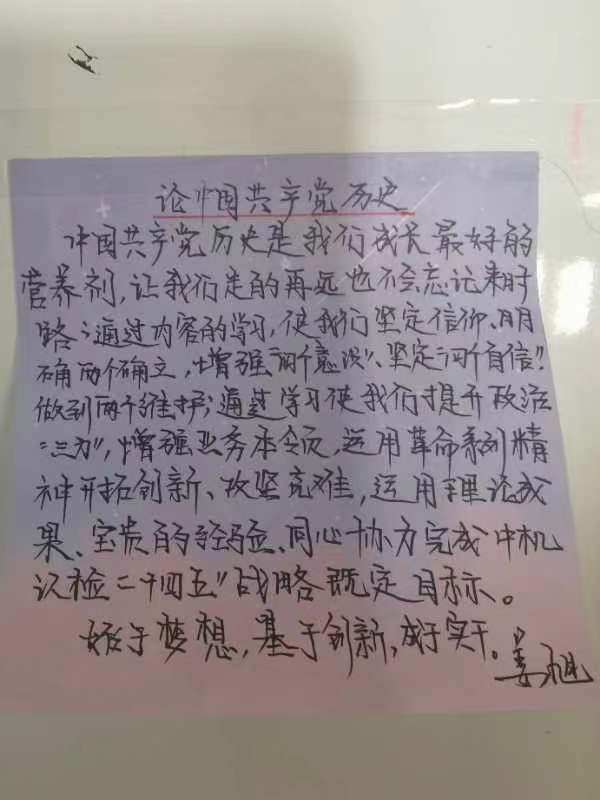 论中国共产党历史
中国共产党历史是我们成长最好的
营养剂,让我们走的再远也不会忘记来时
路;通过内容的学习,使我们坚定信仰、明
确两个确立,增强“四个意识”、坚定“四个自信”!
做到两个维护;通过学习使我们提升政治
“三力”,增强业务本领,运用革命系列精
神开拓创新、攻坚克难,运用理论成
果、宝贵的经验、同心协力完成中机
认检二十四五”战略既定目标。
始于梦想,基于创新,成于实干。
姜